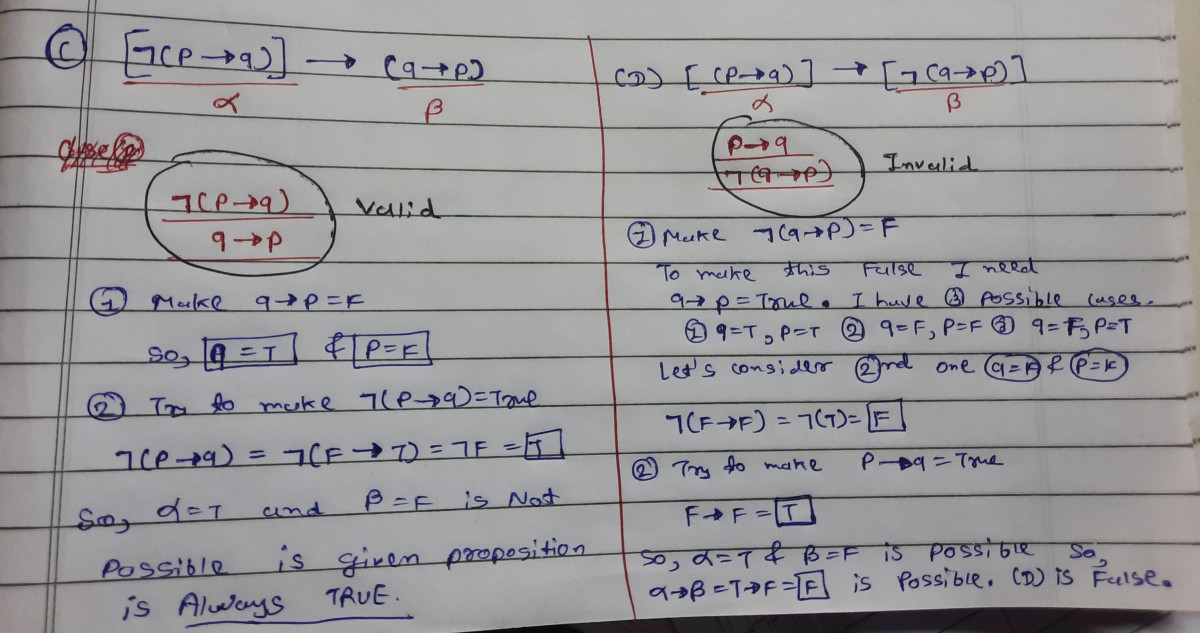 (C) [¬(P→q)] → (q→P)
α β
¬(P→q)
q→P
Valid
① Make q→P=F
So, q=T & P=F
② Try to make ¬(P→q)=True
¬(P→q) = ¬(F→T) = ¬F = T
So, α=T and β=F is Not
Possible is given proposition
is Always TRUE.
(D) [(P→q)] → [¬(q→P)]
α β
P→q
¬(q→P)
Invalid
① Make ¬(q→P)=F
To make this False I need
q→P=True. I have ③ possible cases.
① q=T, P=T ② q=F, P=F ③ q=F, P=T
Let's consider ②nd one q=F & P=F
¬(F→F) = ¬(T)= F
② Try to make P→q=True
F→F = T
So, α=T & β=F is possible So,
α→β=T→F=F is Possible. (D) is False.